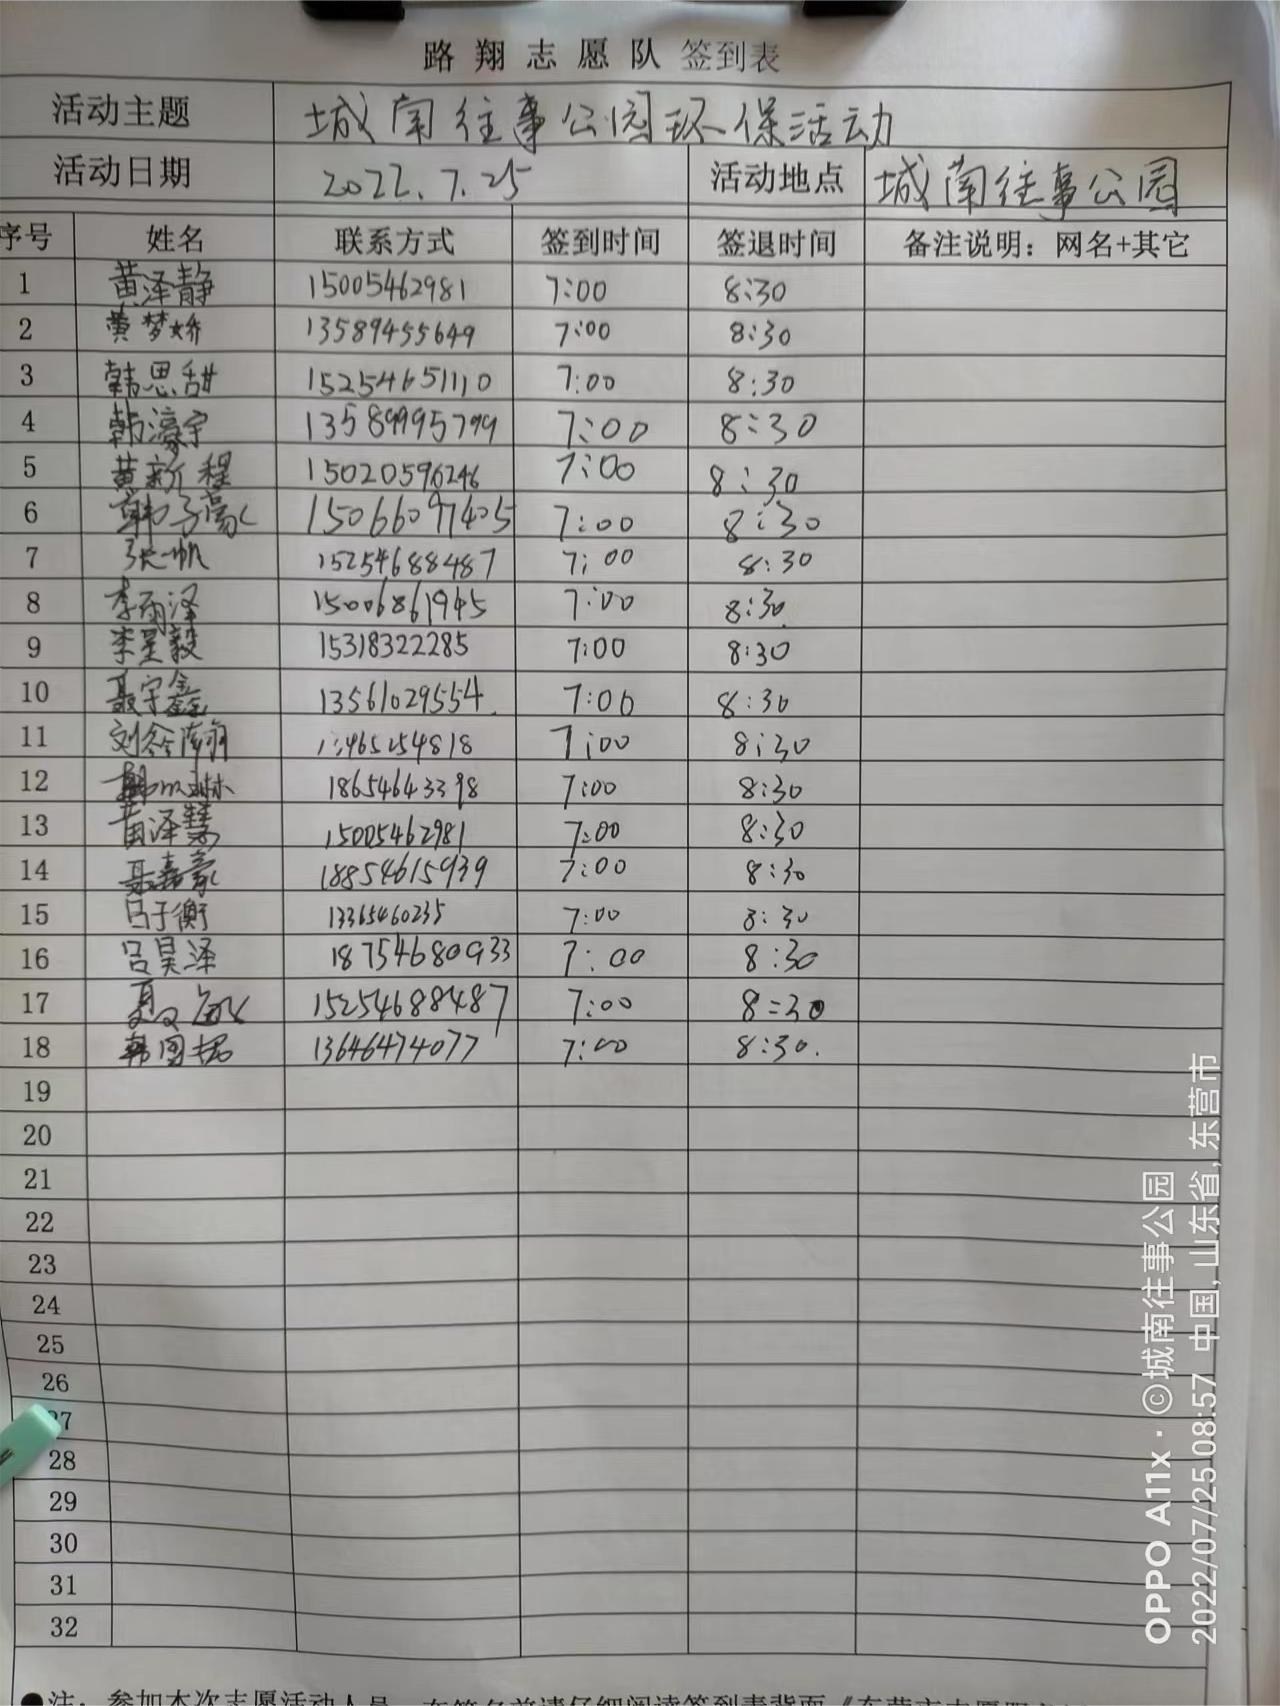 路翔志愿队 签到表
活动主题 城南往事公园环保活动
活动日期 2022.7.25 活动地点 城南往事公园
序号 姓名 联系方式 签到时间 签退时间 备注说明：网名+其它
1 黄泽静 15005462981 7:00 8:30
2 黄梦娇 13589455649 7:00 8:30
3 韩思甜 15254651110 7:00 8:30
4 韩濠宇 13589995799 7:00 8:30
5 黄新程 15020596246 7:00 8:30
6 韩子豪 15066097405 7:00 8:30
7 张一帆 15254688487 7:00 8:30
8 李雨泽 15006861945 7:00 8:30
9 李昱毅 15318322285 7:00 8:30
10 聂宇鑫 13561029554 7:00 8:30
11 7:00 8:30
12 18654643398 7:00 8:30
13 黄泽慧 15005462981 7:00 8:30
14 聂嘉豪 18854615939 7:00 8:30
15 吕子衡 13365460235 7:00 8:30
16 吕昊泽 18754680933 7:00 8:30
17 15254688487 7:00 8=30
18 韩国据 13646474077 7:00 8:30.
19
20
21
22
23
24
25
26
27
28
29
30
31
32
OPPO A11x · ©城南往事公园
2022/07/25 08:57 中国, 山东省, 东营市
●注：参加本次志愿活动人员